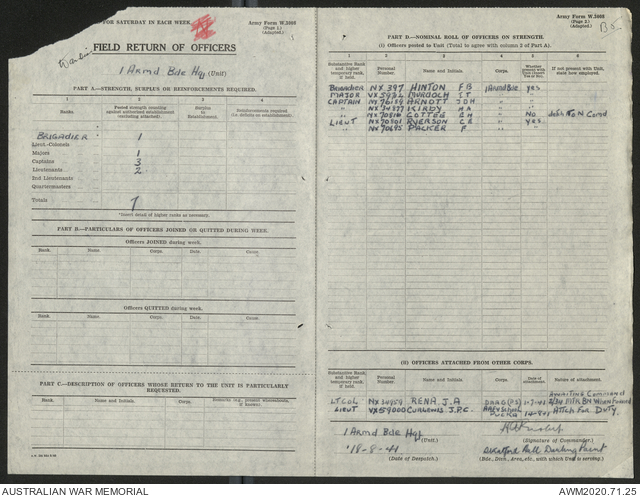 FOR SATURDAY IN EACH WEEK.
Army Form W.3008
(Page 1.)
(Adapted.)
FIELD RETURN OF OFFICERS
1 Armd Bde Hqs (Unit)
PART A.—STRENGTH, SURPLUS OR REINFORCEMENTS REQUIRED.
1 2 3 4
Ranks.
Posted strength counting against authorised establishment (excluding attached).
Surplus to Establishment.
Reinforcements required (i.e. deficits on establishment).
BRIGADIER 1
Lieut-Colonels
Majors 1
Captains 3
Lieutenants 2
2nd Lieutenants
Quartermasters
Totals 7
*Insert detail of higher ranks as necessary.
PART B.—PARTICULARS OF OFFICERS JOINED OR QUITTED DURING WEEK.
Officers JOINED during week.
Rank. Name. Corps. Date. Cause.
Officers QUITTED during week.
Rank. Name. Corps. Date. Cause.
PART C.—DESCRIPTION OF OFFICERS WHOSE RETURN TO THE UNIT IS PARTICULARLY REQUESTED.
Rank. Name and Initials. Corps. Remarks (e.g., present whereabouts, if known).
Army Form W.3008
(Page 2.)
(Adapted.)
PART D.—NOMINAL ROLL OF OFFICERS ON STRENGTH.
(i) Officers posted to Unit (Total to agree with column 2 of Part A).
1 2 3 4 5 6
Substantive Rank and higher temporary rank, if held.
Personal Number.
Name and Initials.
Corps.
Whether present with Unit (insert Yes or No).
If not present with Unit, state how employed.
BRIGADIER NX 397 HINTON F B 1 Armd Bde yes
MAJOR MURDOCH I T " "
CAPTAIN NX 76159 ARNOTT J D H " "
" KIRBY " "
" COTTEE " NO
LIEUT RYERSON C R " yes
" PACKER F " "
(ii) OFFICERS ATTACHED FROM OTHER CORPS.
Substantive Rank and higher temporary rank, if held.
Personal Number.
Name and Initials.
Corps.
Date of attachment.
Nature of attachment.
Awaiting Command
LT COL NX 34959 RENA J. A When Formed
LIEUT VX 59000 CURLEWIS J. P. C. School 14-8-41 Attch For Duty.
PUCKA
1 Armd Bde Hqs (Unit.)
(Signature of Commander.)
18-8-41
(Date of Despatch.)
Darling Point
(Bde., Divn., Area, etc., with which Unit is serving.)
AUSTRALIAN WAR MEMORIAL
AWM2020.71.25